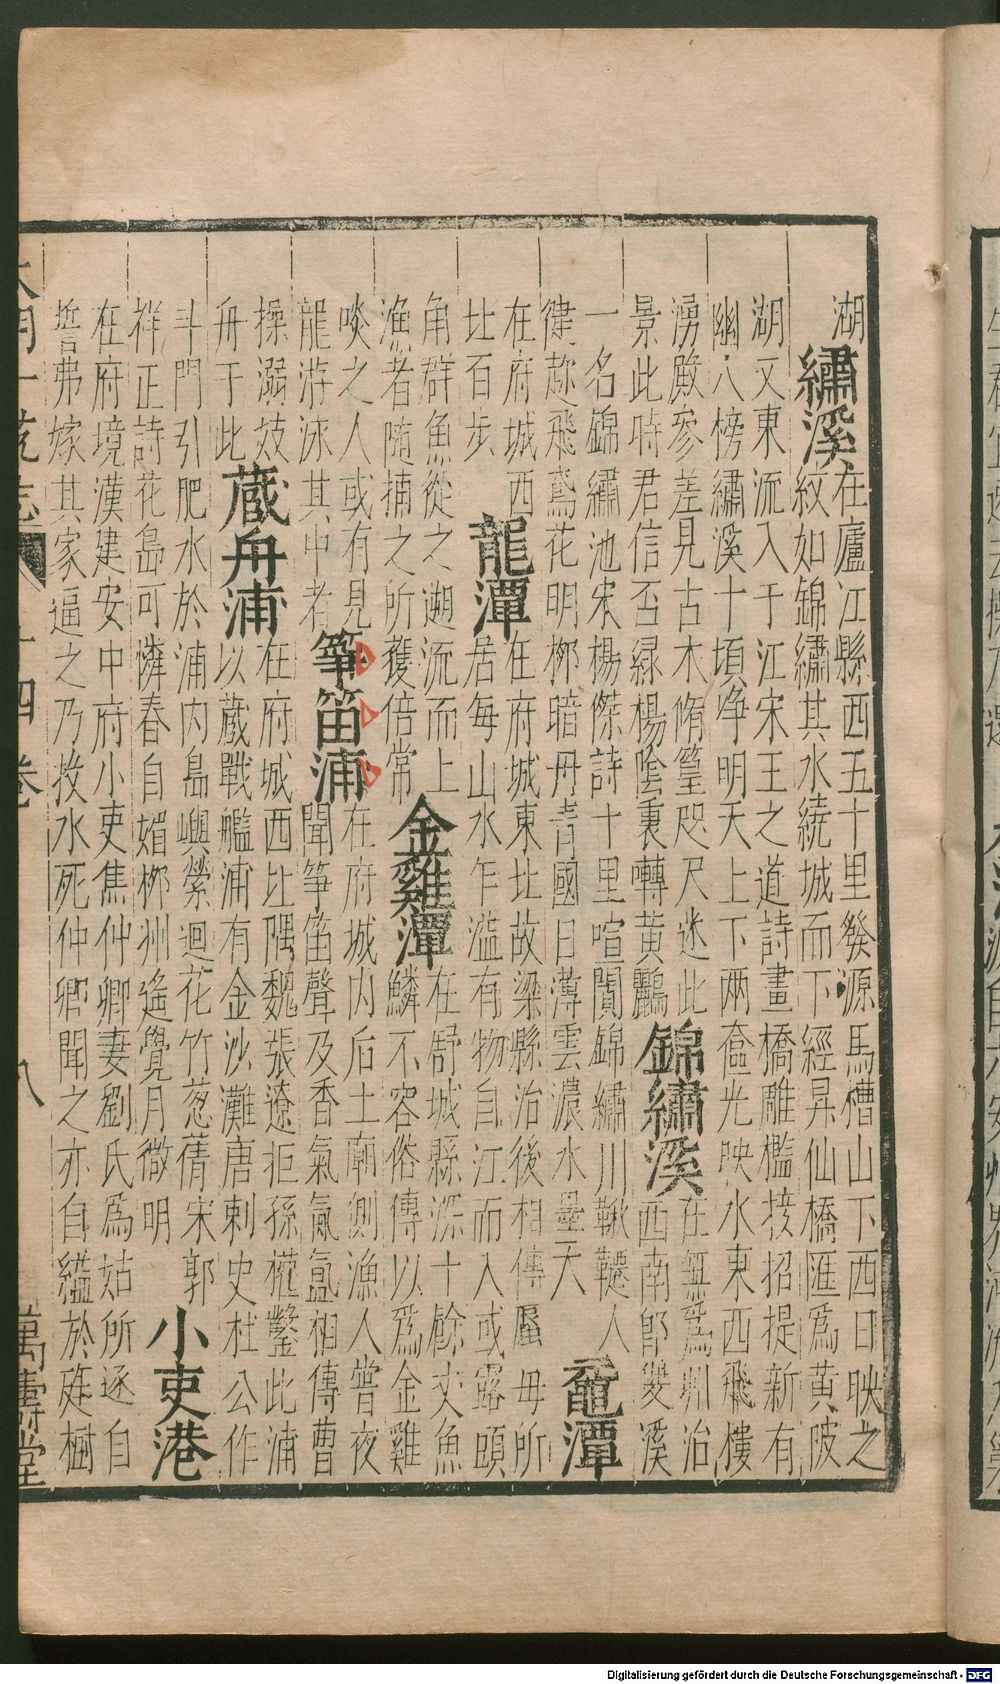 湖
繡溪
在廬江縣西五十里發源馬槽山下西日映之
紋如錦繡其水繞城而下經昇仙橋匯為黃陂
湖又東流入于江宋王之道詩畫橋雕檻接招提新有
幽人榜繡溪十頃淨明天上下兩奩光映水東西飛樓
湧殿參差見古木脩篁咫尺迷此
景此時君信否綠楊陰裏囀黃鸝
錦繡溪
在無為州治
西南郎雙溪
一名錦繡池宋楊傑詩十里喧闐錦繡川鞦韆人
健趂飛鳶花明栁暗丹青國日薄雲濃水墨天
黿潭
在府城西
比百步
龍潭
在府城東北故梁縣治後相傳蜃母所
居每山水乍溢有物自江而入或露頭
角群魚從之遡流而上
漁者隨捕之所獲倍常
金雞潭
在舒城縣深十餘丈魚
鱗不容俗傳以為金雞
啖之人或有見
龍游泳其中者
箏笛浦
在府城內后土廟側漁人嘗夜
聞箏笛聲及香氣氤氳相傳曹
操溺妓
舟于此
藏舟浦
在府城西北隅魏張遼拒孫權鑿此浦
以藏戰艦浦有金沙灘唐刺史杜公作
斗門引肥水於浦內島嶼縈迴花竹蔥蒨宋郭
祥正詩花島可憐春自媚栁洲遙覺月微明
小吏港
在府境漢建安中府小吏焦仲卿妻劉氏為姑所逐自
誓弗嫁其家逼之乃投水死仲卿聞之亦自縊於庭樹
大明一統志
十四卷
八
萬壽堂
Digitalisierung gefördert durch die Deutsche Forschungsgemeinschaft - DFG